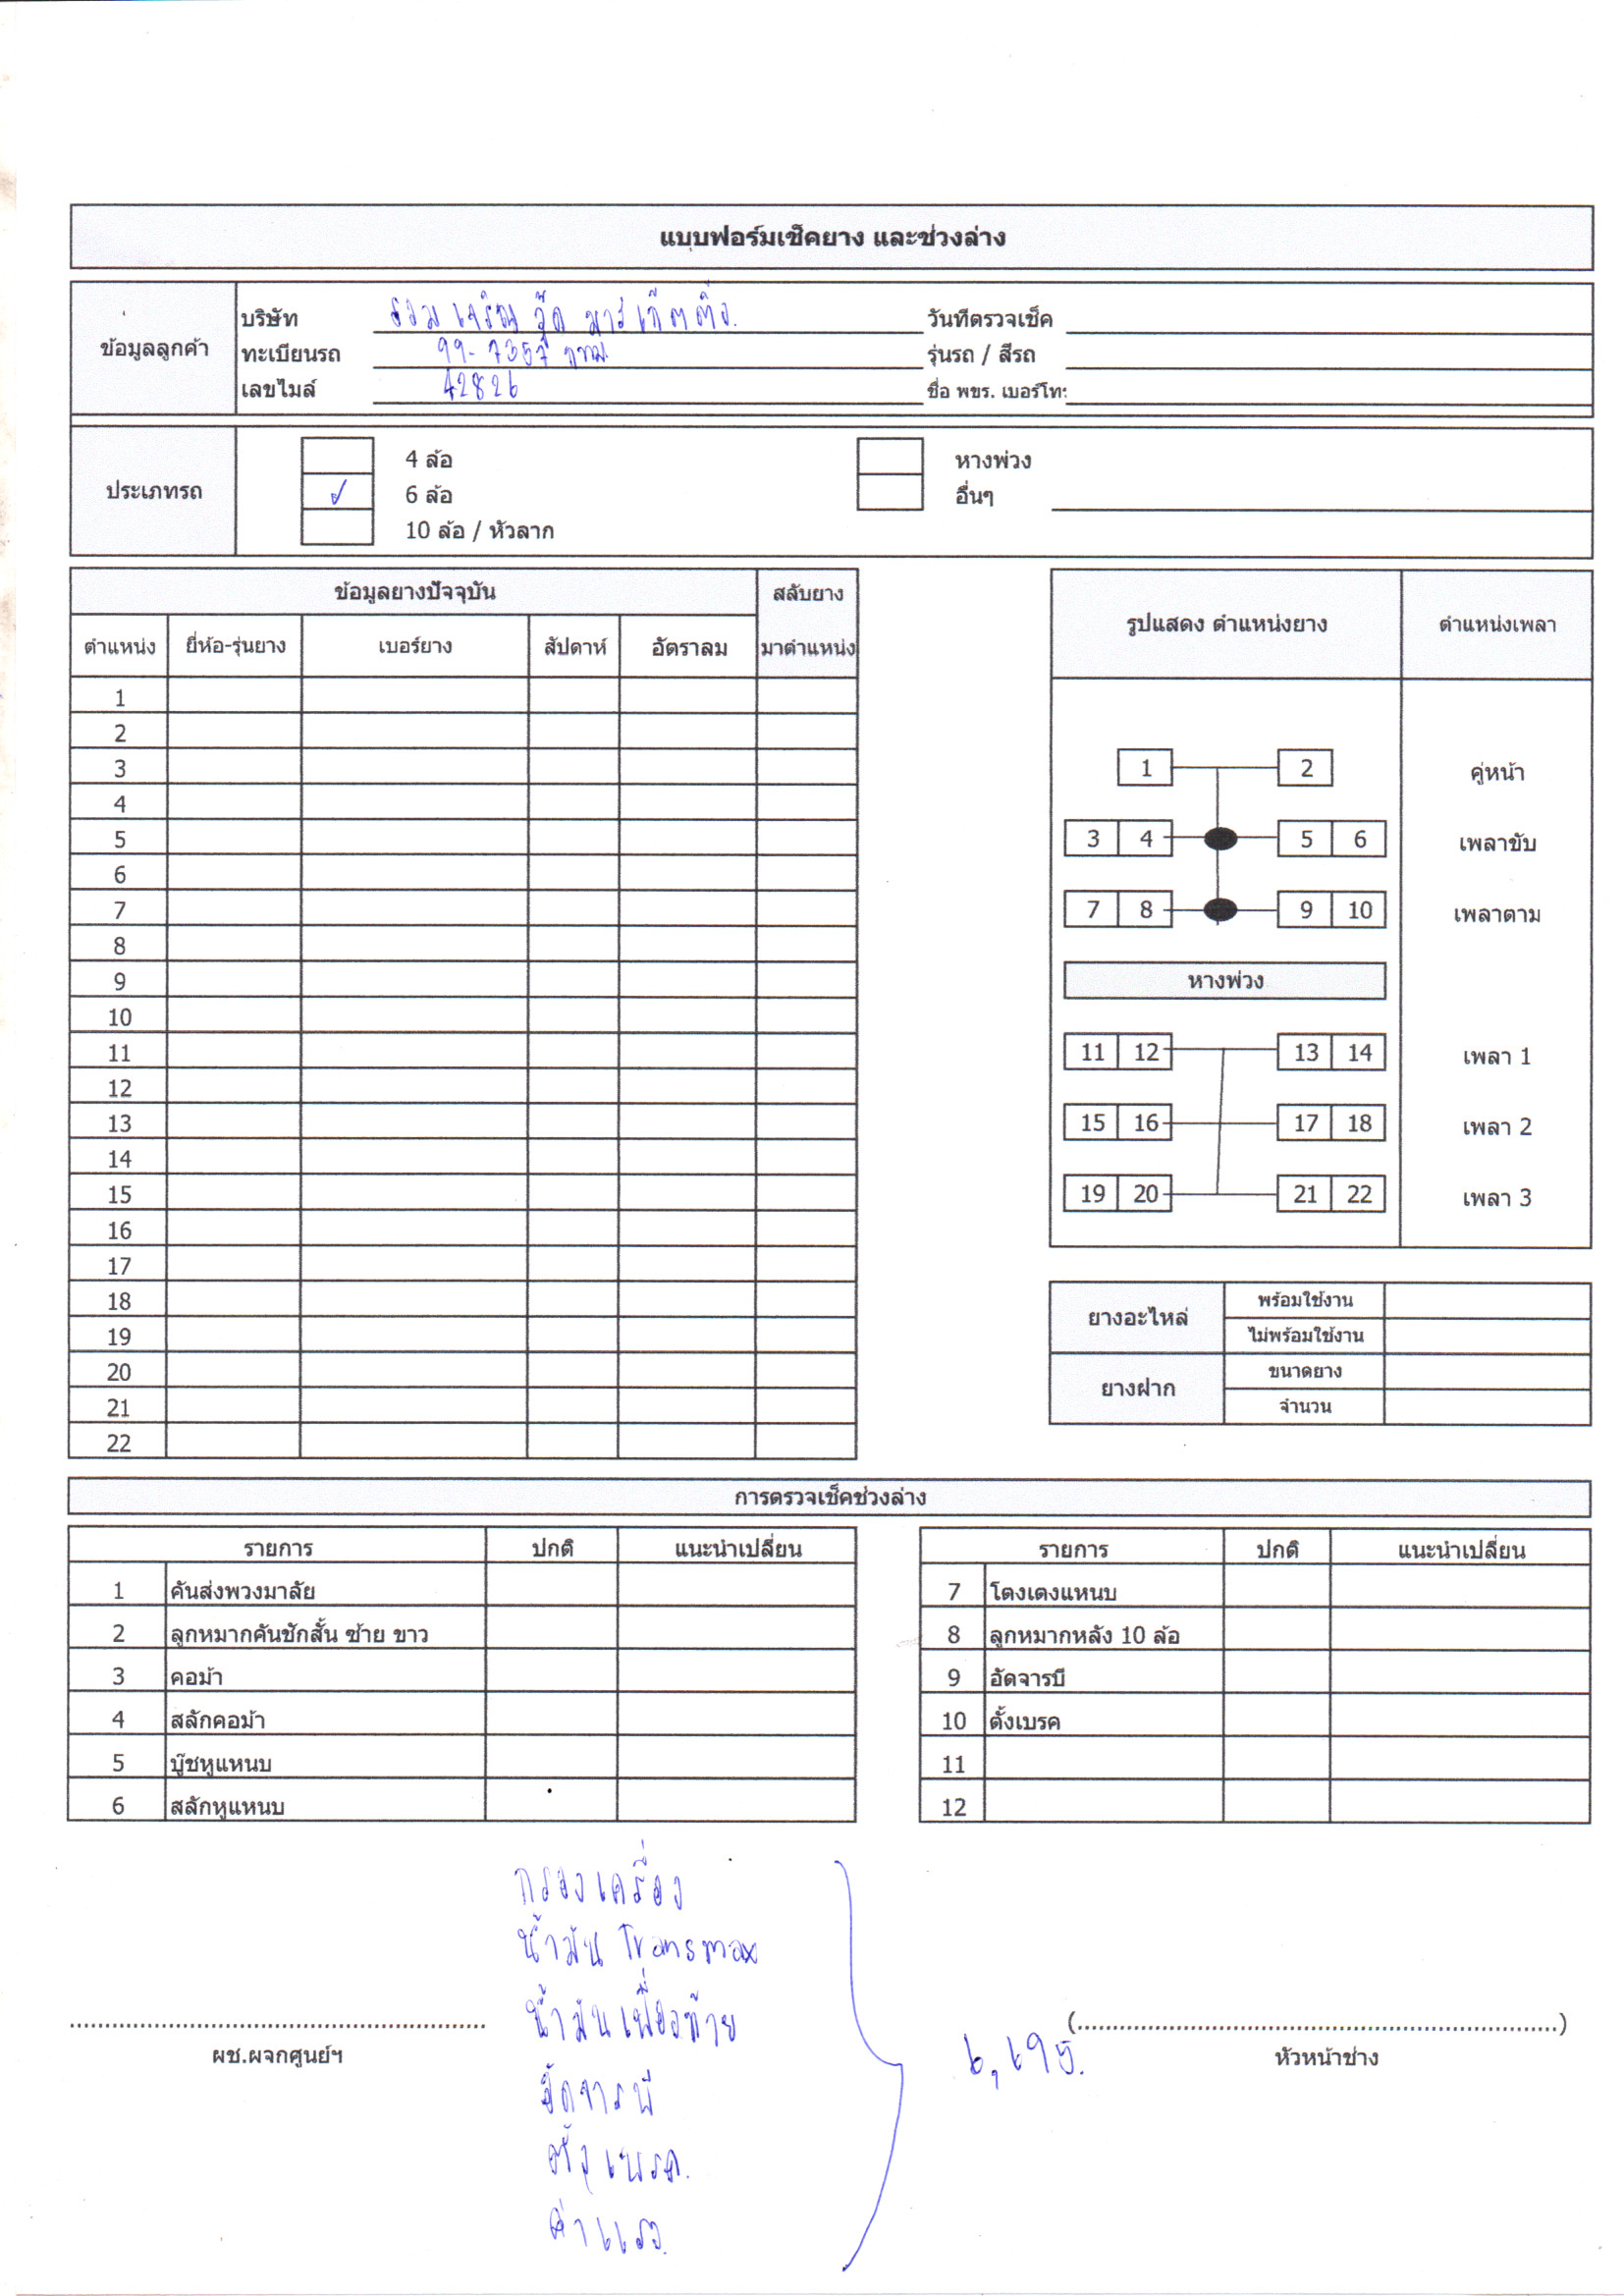 แบบฟอร์มเช็คยาง และช่วงล่าง
ข้อมูลลูกค้า
บริษัท รวมเจริญ วู๊ด มาร์เก็ตติ้ง. วันที่ตรวจเช็ค
ทะเบียนรถ 99-7357 กทม. รุ่นรถ / สีรถ
เลขไมล์ 42826 ชื่อ พขร. เบอร์โทร
ประเภทรถ
4 ล้อ หางพ่วง
6 ล้อ อื่นๆ
10 ล้อ / หัวลาก
ข้อมูลยางปัจจุบัน สลับยาง
ตำแหน่ง ยี่ห้อ-รุ่นยาง เบอร์ยาง สัปดาห์ อัตราลม มาตำแหน่ง
1
2
3
4
5
6
7
8
9
10
11
12
13
14
15
16
17
18
19
20
21
22
รูปแสดง ตำแหน่งยาง ตำแหน่งเพลา
1 2 คู่หน้า
3 4 5 6 เพลาขับ
7 8 9 10 เพลาตาม
หางพ่วง
11 12 13 14 เพลา 1
15 16 17 18 เพลา 2
19 20 21 22 เพลา 3
ยางอะไหล่ พร้อมใช้งาน
ไม่พร้อมใช้งาน
ยางฝาก ขนาดยาง
จำนวน
การตรวจเช็คช่วงล่าง
รายการ ปกติ แนะนำเปลี่ยน
1 คันส่งพวงมาลัย
2 ลูกหมากคันชักสั้น ซ้าย ขาว
3 คอม้า
4 สลักคอม้า
5 บู๊ชหูแหนบ
6 สลักหูแหนบ
รายการ ปกติ แนะนำเปลี่ยน
7 โตงเตงแหนบ
8 ลูกหมากหลัง 10 ล้อ
9 อัดจารบี
10 ตั้งเบรค
11
12
กรองเครื่อง
น้ำมัน Transmax
น้ำมันเฟืองท้าย
อัดจารบี
ตั้งเบรค.
ค่าแรง.
6,695.
ผช.ผจกศูนย์ฯ
(..........)
หัวหน้าช่าง